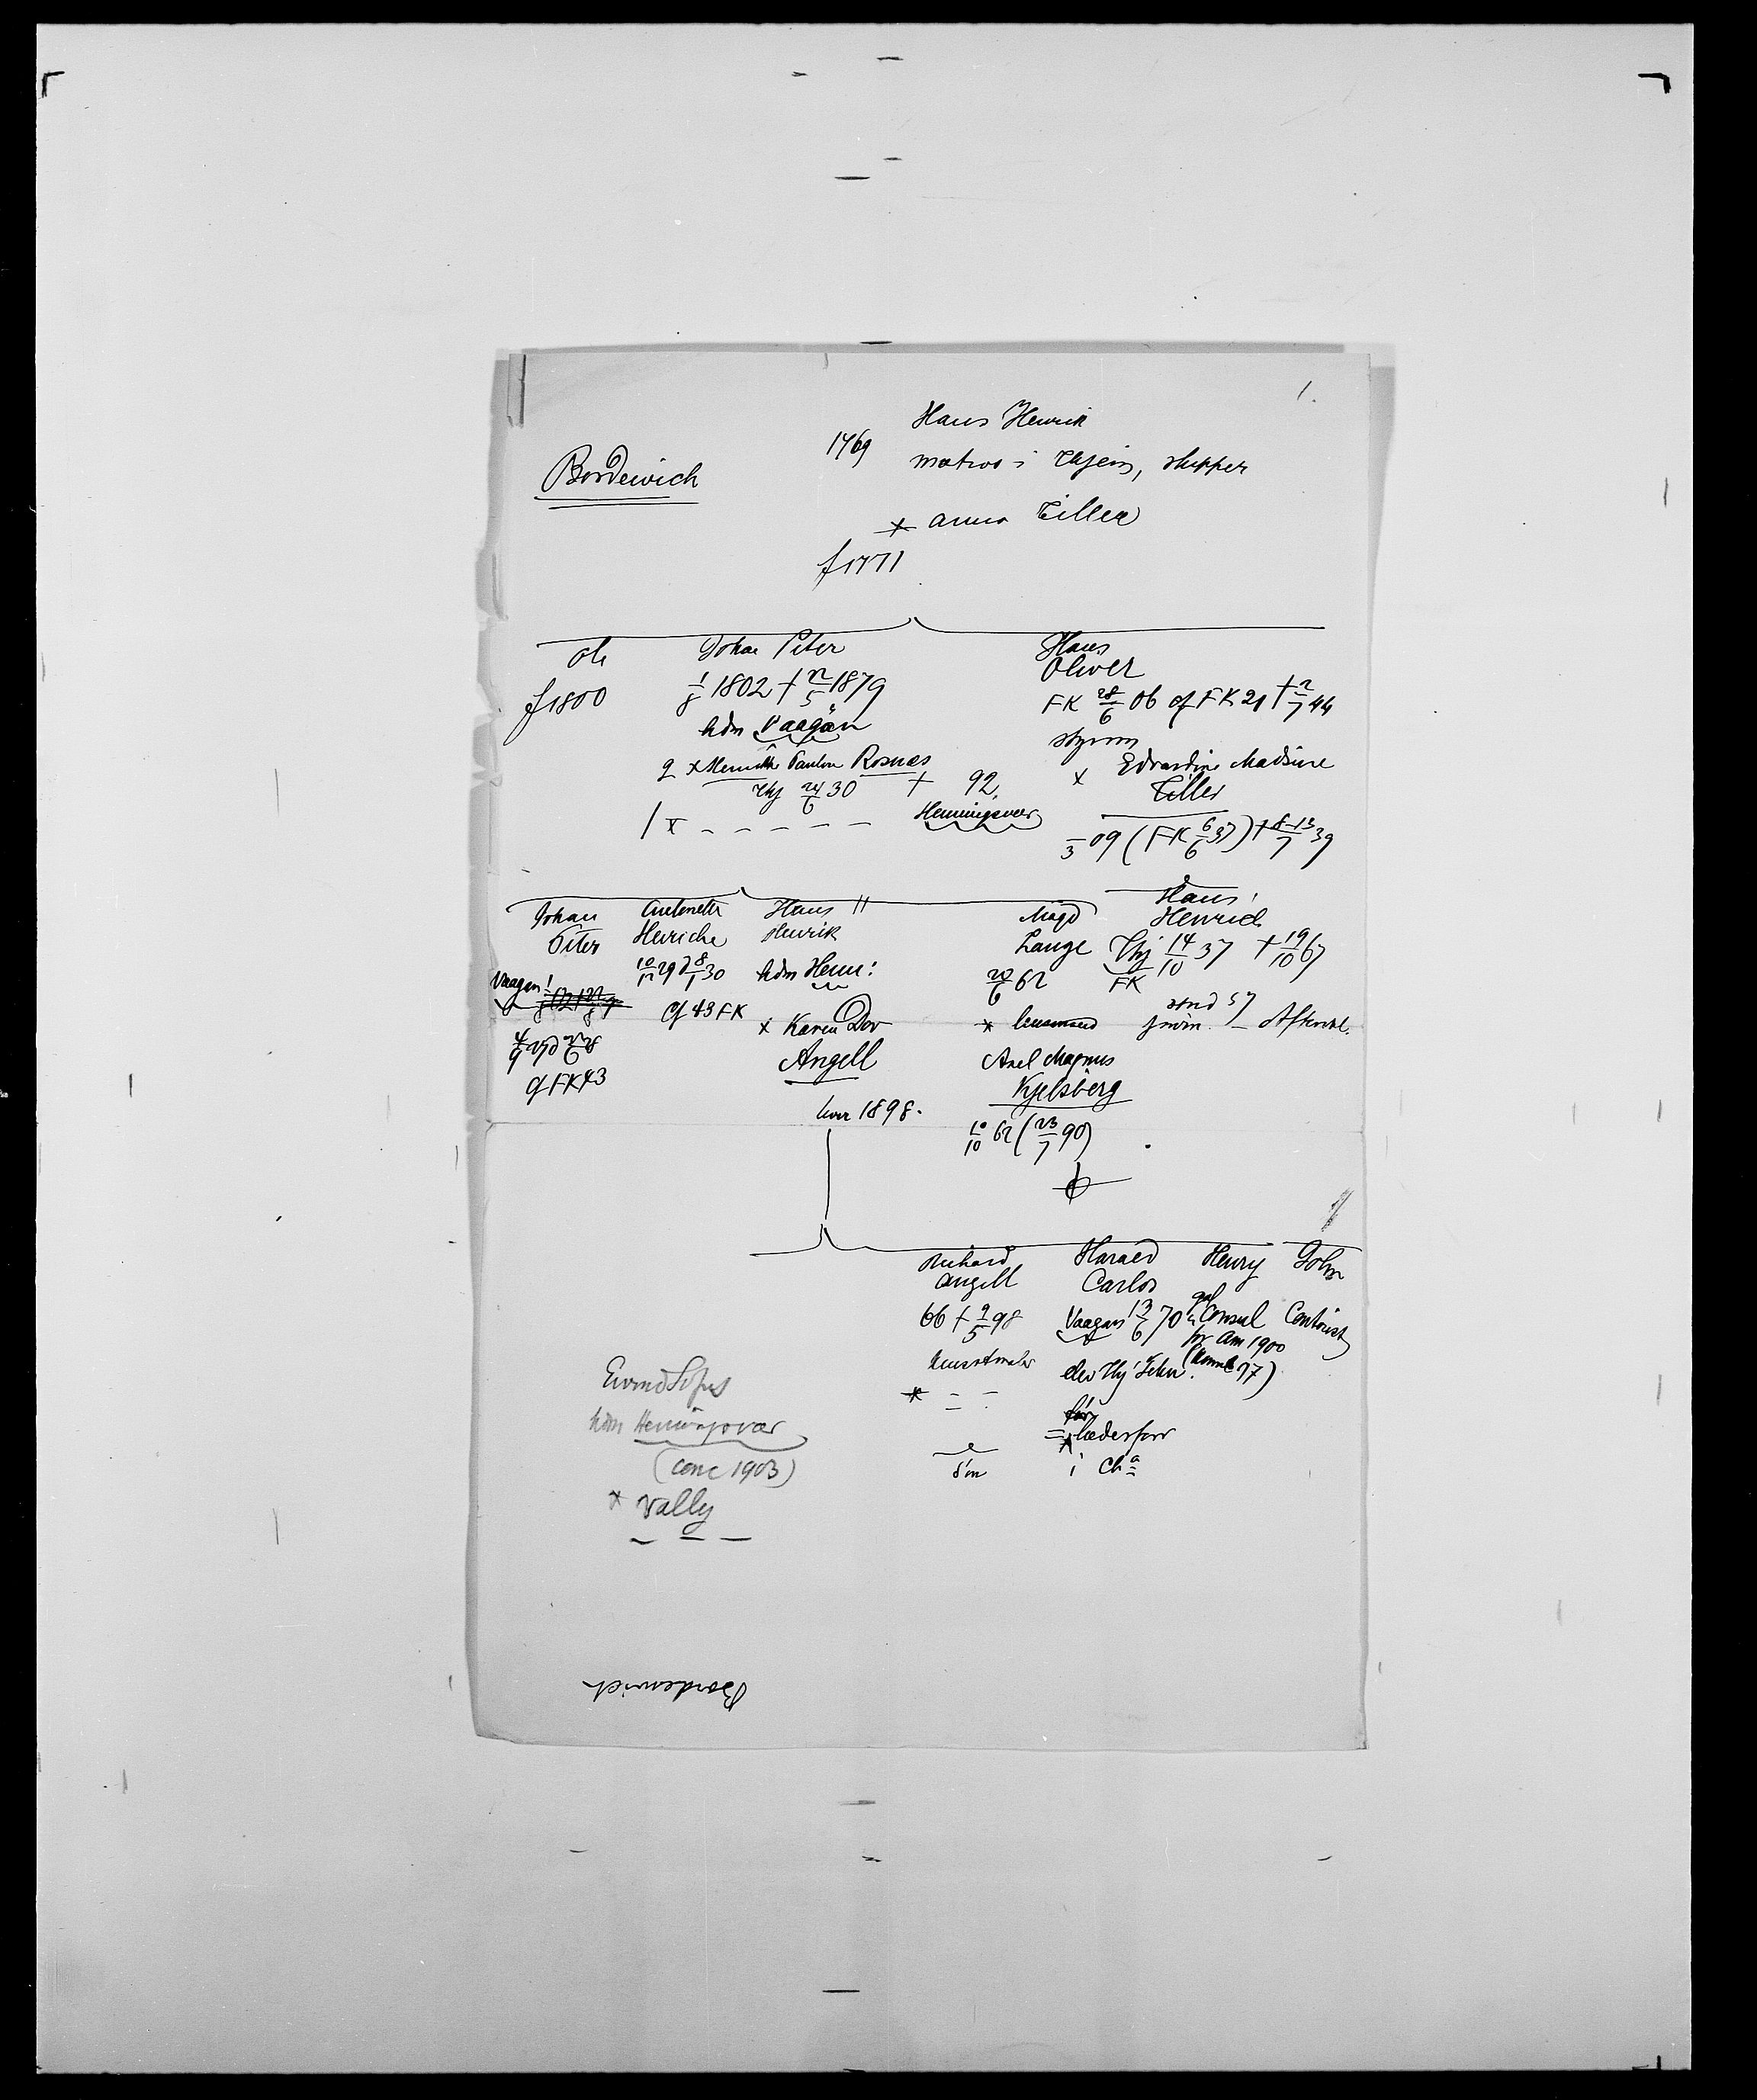 1.
Hans Henrik
1769
Bordewich
matros i Thjem, skipper
x Anna Tiller
f 1771
Ole
f 1800
Johan Peter
1/8 1802 + 22/5 1879
hdm Vaagan
2 x Henrikke Pauline Rosnes
Thj 24/6 30 + 92.
Henningsvær
1 x - - - - - -
Hans
Oliver
FK 28/6 06 cf FK 21 + 2/7 44
styrm
x Edvardine Madsine
Tiller
/3 09 (FK 6/6 37) + 8-13/7 39
Johan
Peter
Vaagan!
4/9 27 d 22/6 28
cf FK 43
Antonette
Henriche
10/12 29 d 8/1 30
cf 43 FK
Hans
Henrik
hdm Henn:
x Karen Dor
Angell
1898.
Magd
Lange
20/6 62
x
Axel Magnus
Kjelsberg
10/10 62 (23/7 90)
Hans
Henrich
Thj 14/10 37 + 19/10 67
FK
stud 57
- Aftenbl.
Richard
Angell
66 + 9/5 98
x - - -
s'm
Harald
Carlos
Vaagan 13/6 70
elev Thj
læderforr
i Ch a
Henry
Consul
for Am 1900
97)
John
Contorist
Eivind Sofus
hdm Henningsvær
(conc 1903)
x Vally
- - -
Bordewich